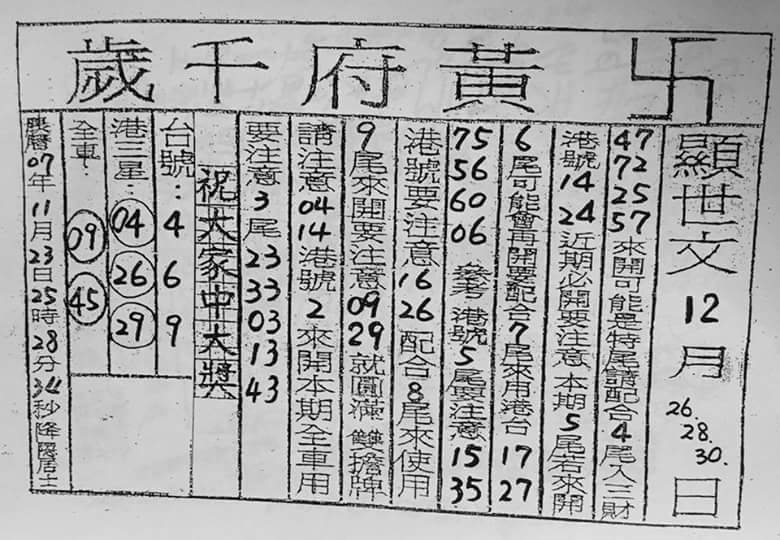 卐黃府千歲
顯世文12月26.28.30.日
47 72 25 57 來開可能是特尾請配合4尾入三財
港號14 24近期必開要注意本期5尾若來開
6尾可能會再開要配合7尾來用港台17 27
75 56 60 06 參考港號5尾要注意15 35
港號要注意16 26配合8尾來使用
9尾來開要注意09 29就圓滿雙擔牌
請注意04 14港號2來開本期全車用
要注意3尾23 33 03 13 43
祝大家中大獎
台號：4 6 9
港三星：04 26 29
全車：09 45
農曆07年11月23日25時28分34秒降國居士